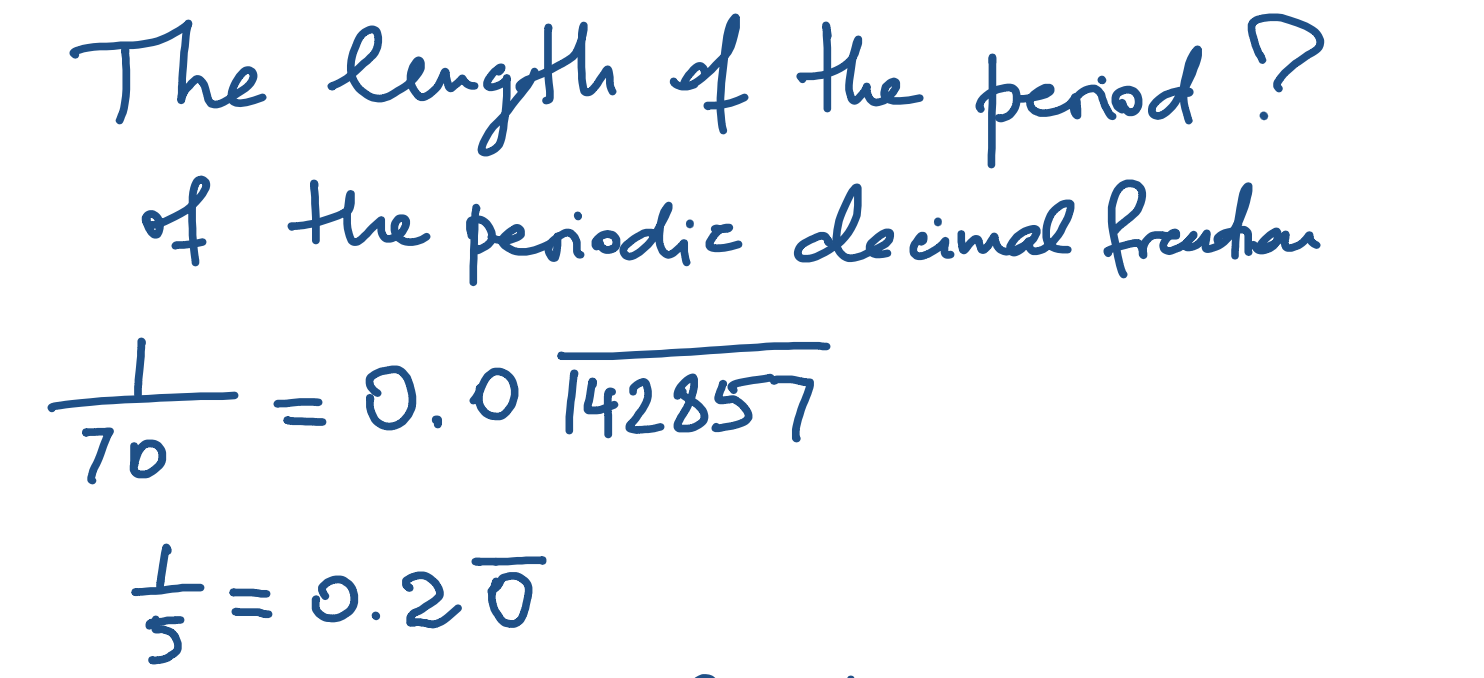 The length of the period?
of the periodic decimal fraction
1/70 = 0.0 1̅4̅2̅8̅5̅7̅
1/5 = 0.2 0̅